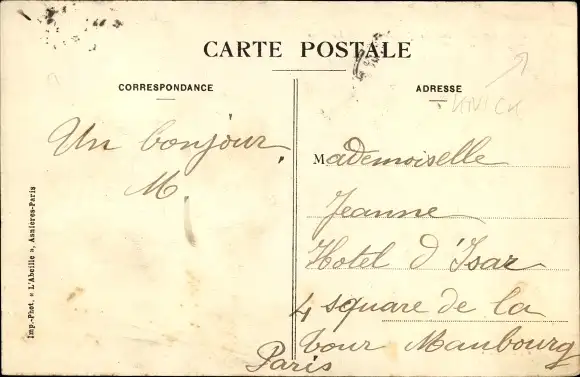 CARTE POSTALE
CORRESPONDANCE
ADRESSE
KNICK
Un bonjour
M
Mademoiselle
Jeanne
Hotel d'Isar
4 square de la
tour Maubourg
Paris
Imp.-Phot. « L'Abeille », Asnières-Paris